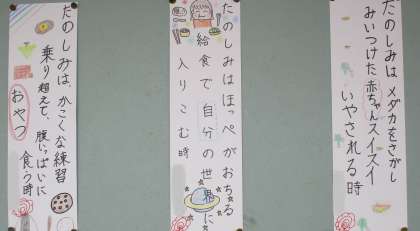 たのしみは メダカをさがし
みいつけた赤ちゃんスイスイ
いやされる時
たのしみはほっぺがおちる
給食で自分の世界に
入りこむ時
たのしみは、かこくな練習
乗り超えて、腹いっぱいに
おやつ食う時